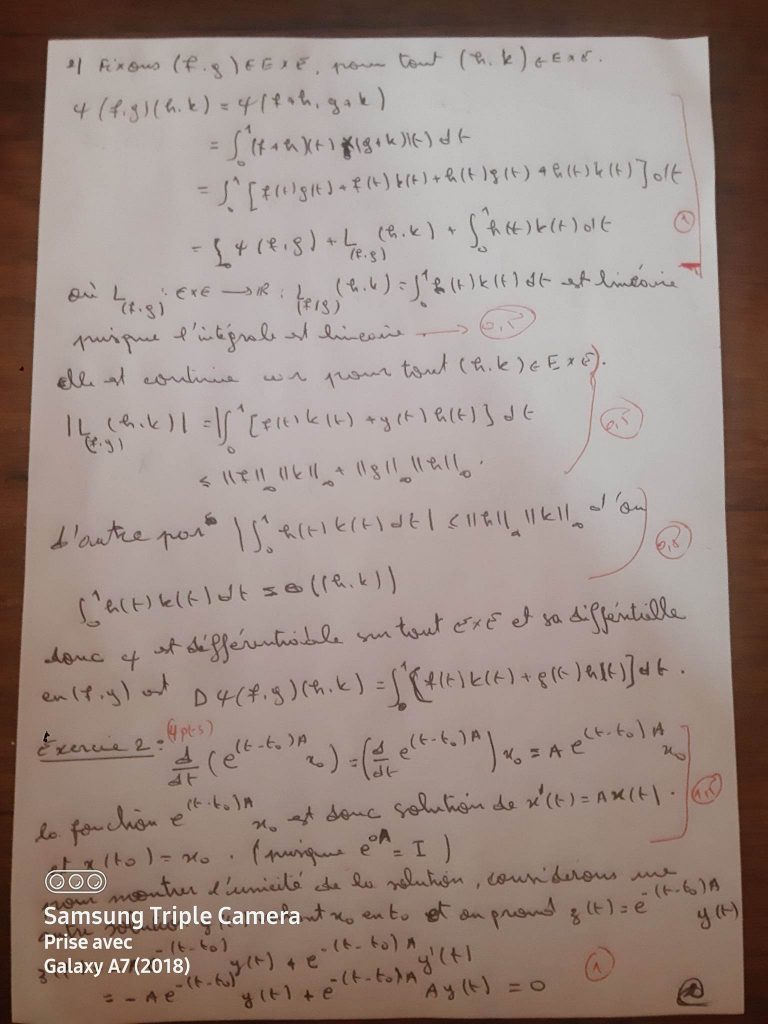 2/ Fixons (f,g) ∈ E×E, pour tout (h,k) ∈ E×E.
φ(f,g)(h,k) = φ(f+h, g+k)
= ∫₀¹ (f+h)(t) (g+k)(t) dt
= ∫₀¹ [f(t)g(t) + f(t)k(t) + h(t)g(t) + h(t)k(t)] dt
= φ(f,g) + L_(f,g)(h,k) + ∫₀¹ h(t)k(t) dt
1
où L_(f,g) : E×E → ℝ : L_(f,g)(h,k) = ∫₀¹ h(t)k(t) dt est linéaire
puisque l'intégrale est linéaire → 0,5
elle est continue car pour tout (h,k) ∈ E×E.
|L_(f,g)(h,k)| = |∫₀¹ [f(t)k(t) + g(t)h(t)] dt
0,5
≤ ||f||_∞ ||k||_∞ + ||g||_∞ ||h||_∞.
d'autre part |∫₀¹ h(t)k(t) dt| ≤ ||h||_∞ ||k||_∞ d'où
0,5
∫₀¹ h(t)k(t) dt = o((h,k))
donc φ est différentiable sur tout E×E et sa différentielle
en (f,g) est Dφ(f,g)(h,k) = ∫₀¹ [f(t)k(t) + g(t)h(t)] dt.
Exercice 2 : (4pts) d/dt (e^{(t-t₀)A} x₀) = (d/dt e^{(t-t₀)A}) x₀ = A e^{(t-t₀)A} x₀
la fonction e^{(t-t₀)A} x₀ est donc solution de x'(t) = Ax(t).
et x(t₀) = x₀. (puisque e^{0A} = I)
pour montrer l'unicité de la solution, considérons une
autre solution x₀ en t₀ et on prend z(t) = e^{-(t-t₀)A} y(t)
e^{-(t-t₀)} y(t) + e^{-(t-t₀)A} y'(t)
= -A e^{-(t-t₀)} y(t) + e^{-(t-t₀)A} A y(t) = 0
1
2
Samsung Triple Camera
Prise avec
Galaxy A7 (2018)